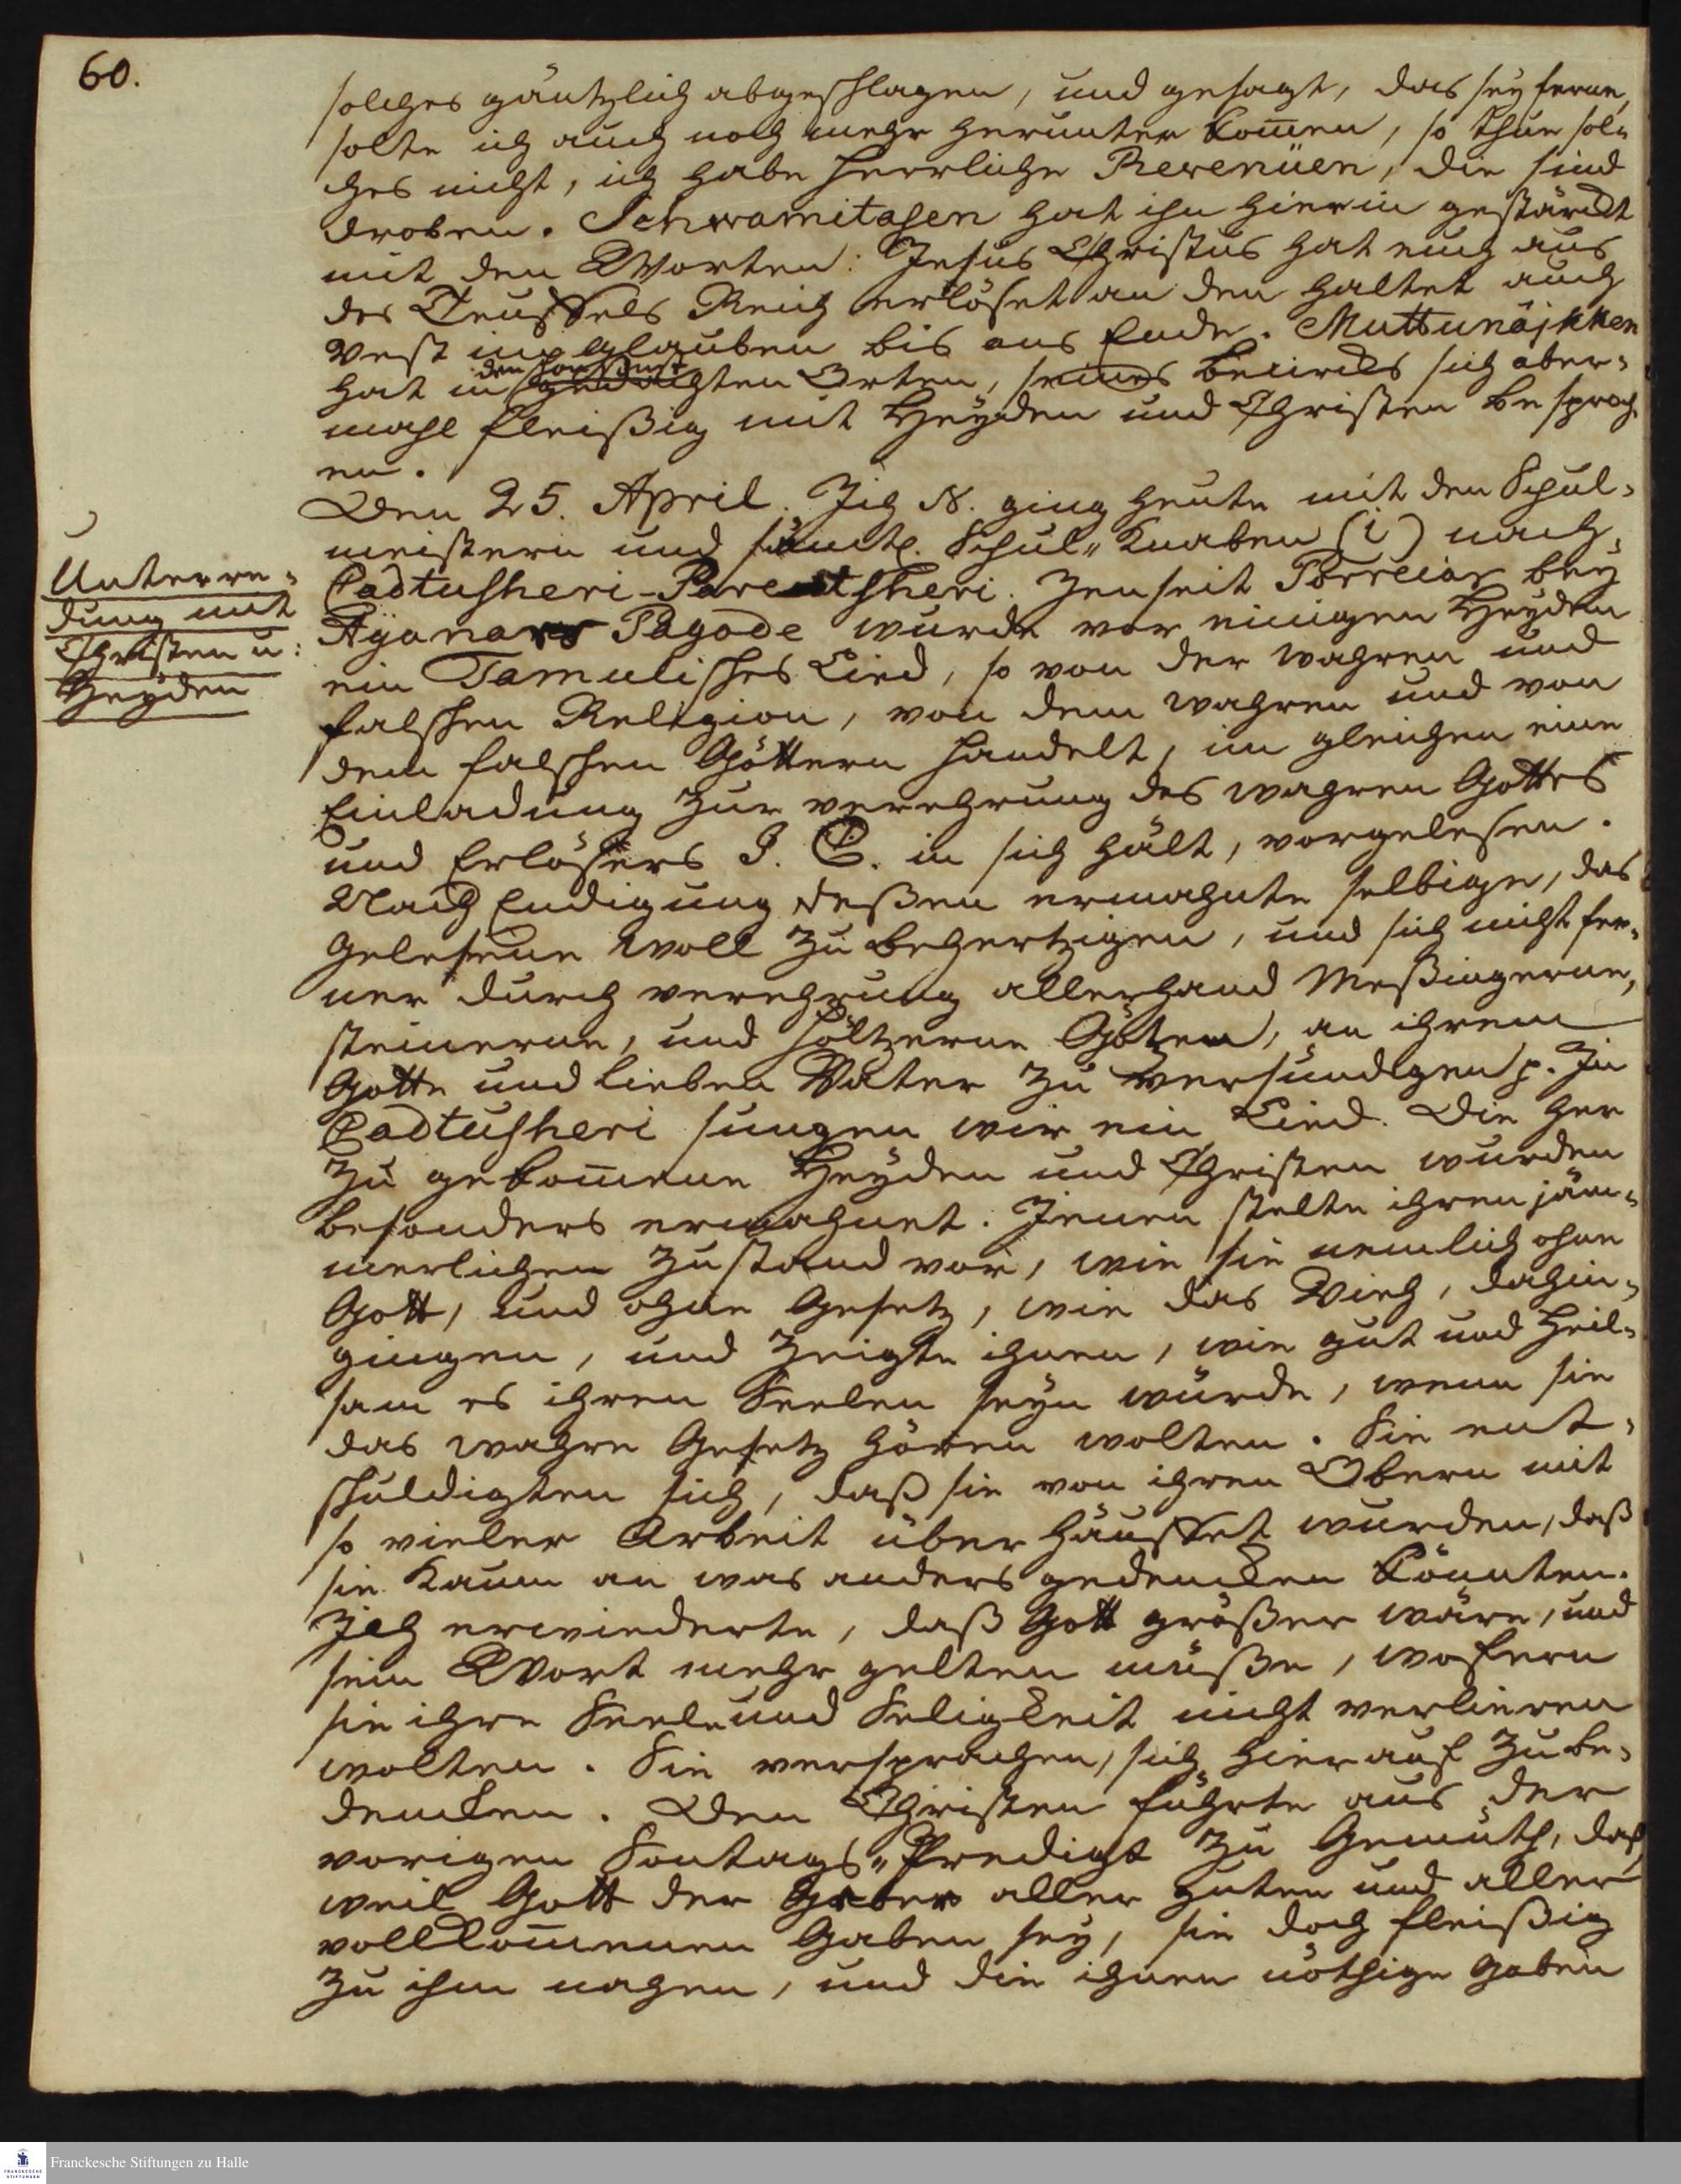 60.
solches gäntzlich abgeschlagen, und gesagt, das sey ferne,
solte ich auch noch mehr herunter kom̅en, so thue sol=
ches nicht, ich habe herrliche Revenüen, die sind
droben. Schwamitasen hat ihn hierin gestärckt
mit den Worten: Jesus Christus hat euch aus
des Teuffels Reich erlöset an den haltet auch
vest im glauben bis ans Ende. Muttunäjkken
den sonst
hat in gedachten Orten, seines Bezircks sich aber=
mahl fleißig mit Heyden und Christen besproch
en.
Den 25. April. Ich N. ging heute mit den Schul=
meistern und sämtl. Schul" Knaben (i) nach
Unterre=
dung mit
Christen u:
Heyden
Cadtuscheri-Pareitscheri. Jenseit Porreiar bey
Ayanars Pagode wurde vor einigen Heyden
ein Tamulisches Lied, so von der wahren und
falschen Religion, von dem wahren und von
dem falschen Göttern handelt, im gleichen eine
Einladung zur verehrung des wahren Gottes
und Erlösers J. C. in sich hält, vorgelesen.
Nach Endigung deßen ermahnte selbige, das
Gelesene woll zu behertzigen, und sich nicht fer=
ner durch verehrung allerhand Meßingerne,
steinerne, und höltzerne Götzen, an ihrem
Gotte und lieben Vater zu versündigen p. In
Cadtuscheri sungen wir ein Lied. Die her
zu gekom̅ene Heyden und Christen wurden
besonders ermahnet. Jenen stelte ihren jäm=
merlichen Zustand vor, wie sie nemlich ohne
Gott, und ohne Gesetz, wie das Vieh, dahin=
gingen, und zeigte ihnen, wie gut und Heil=
sam es ihren Seelen seyn würde, wenn sie
das wahre Gesetz hören wolten. Sie ent=
schuldigten sich, daß sie von ihren Obern mit
so vieler Arbeit über häuffet wurden, daß
sie kaum an was anders gedencken könnten.
Ich erwiederte, daß Gott größer wäre, und
sein Wort mehr gelten müße, wofern
sie ihre Seele und Seligkeit nicht verlieren
wolten. Sie versprachen, sich hierauf zu be=
dencken. Den Christen führte aus der
vorigen Sontags" Predigt zu Gemüth, daß,
weil Gott der Geber aller guten und aller
vollkom̅enen Gaben sey, sie doch fleißig
zu ihm nahen, und die ihnen nöthige Gaben
Franckesche Stiftungen zu Halle
FRANCKESCHE STIFTUNGEN